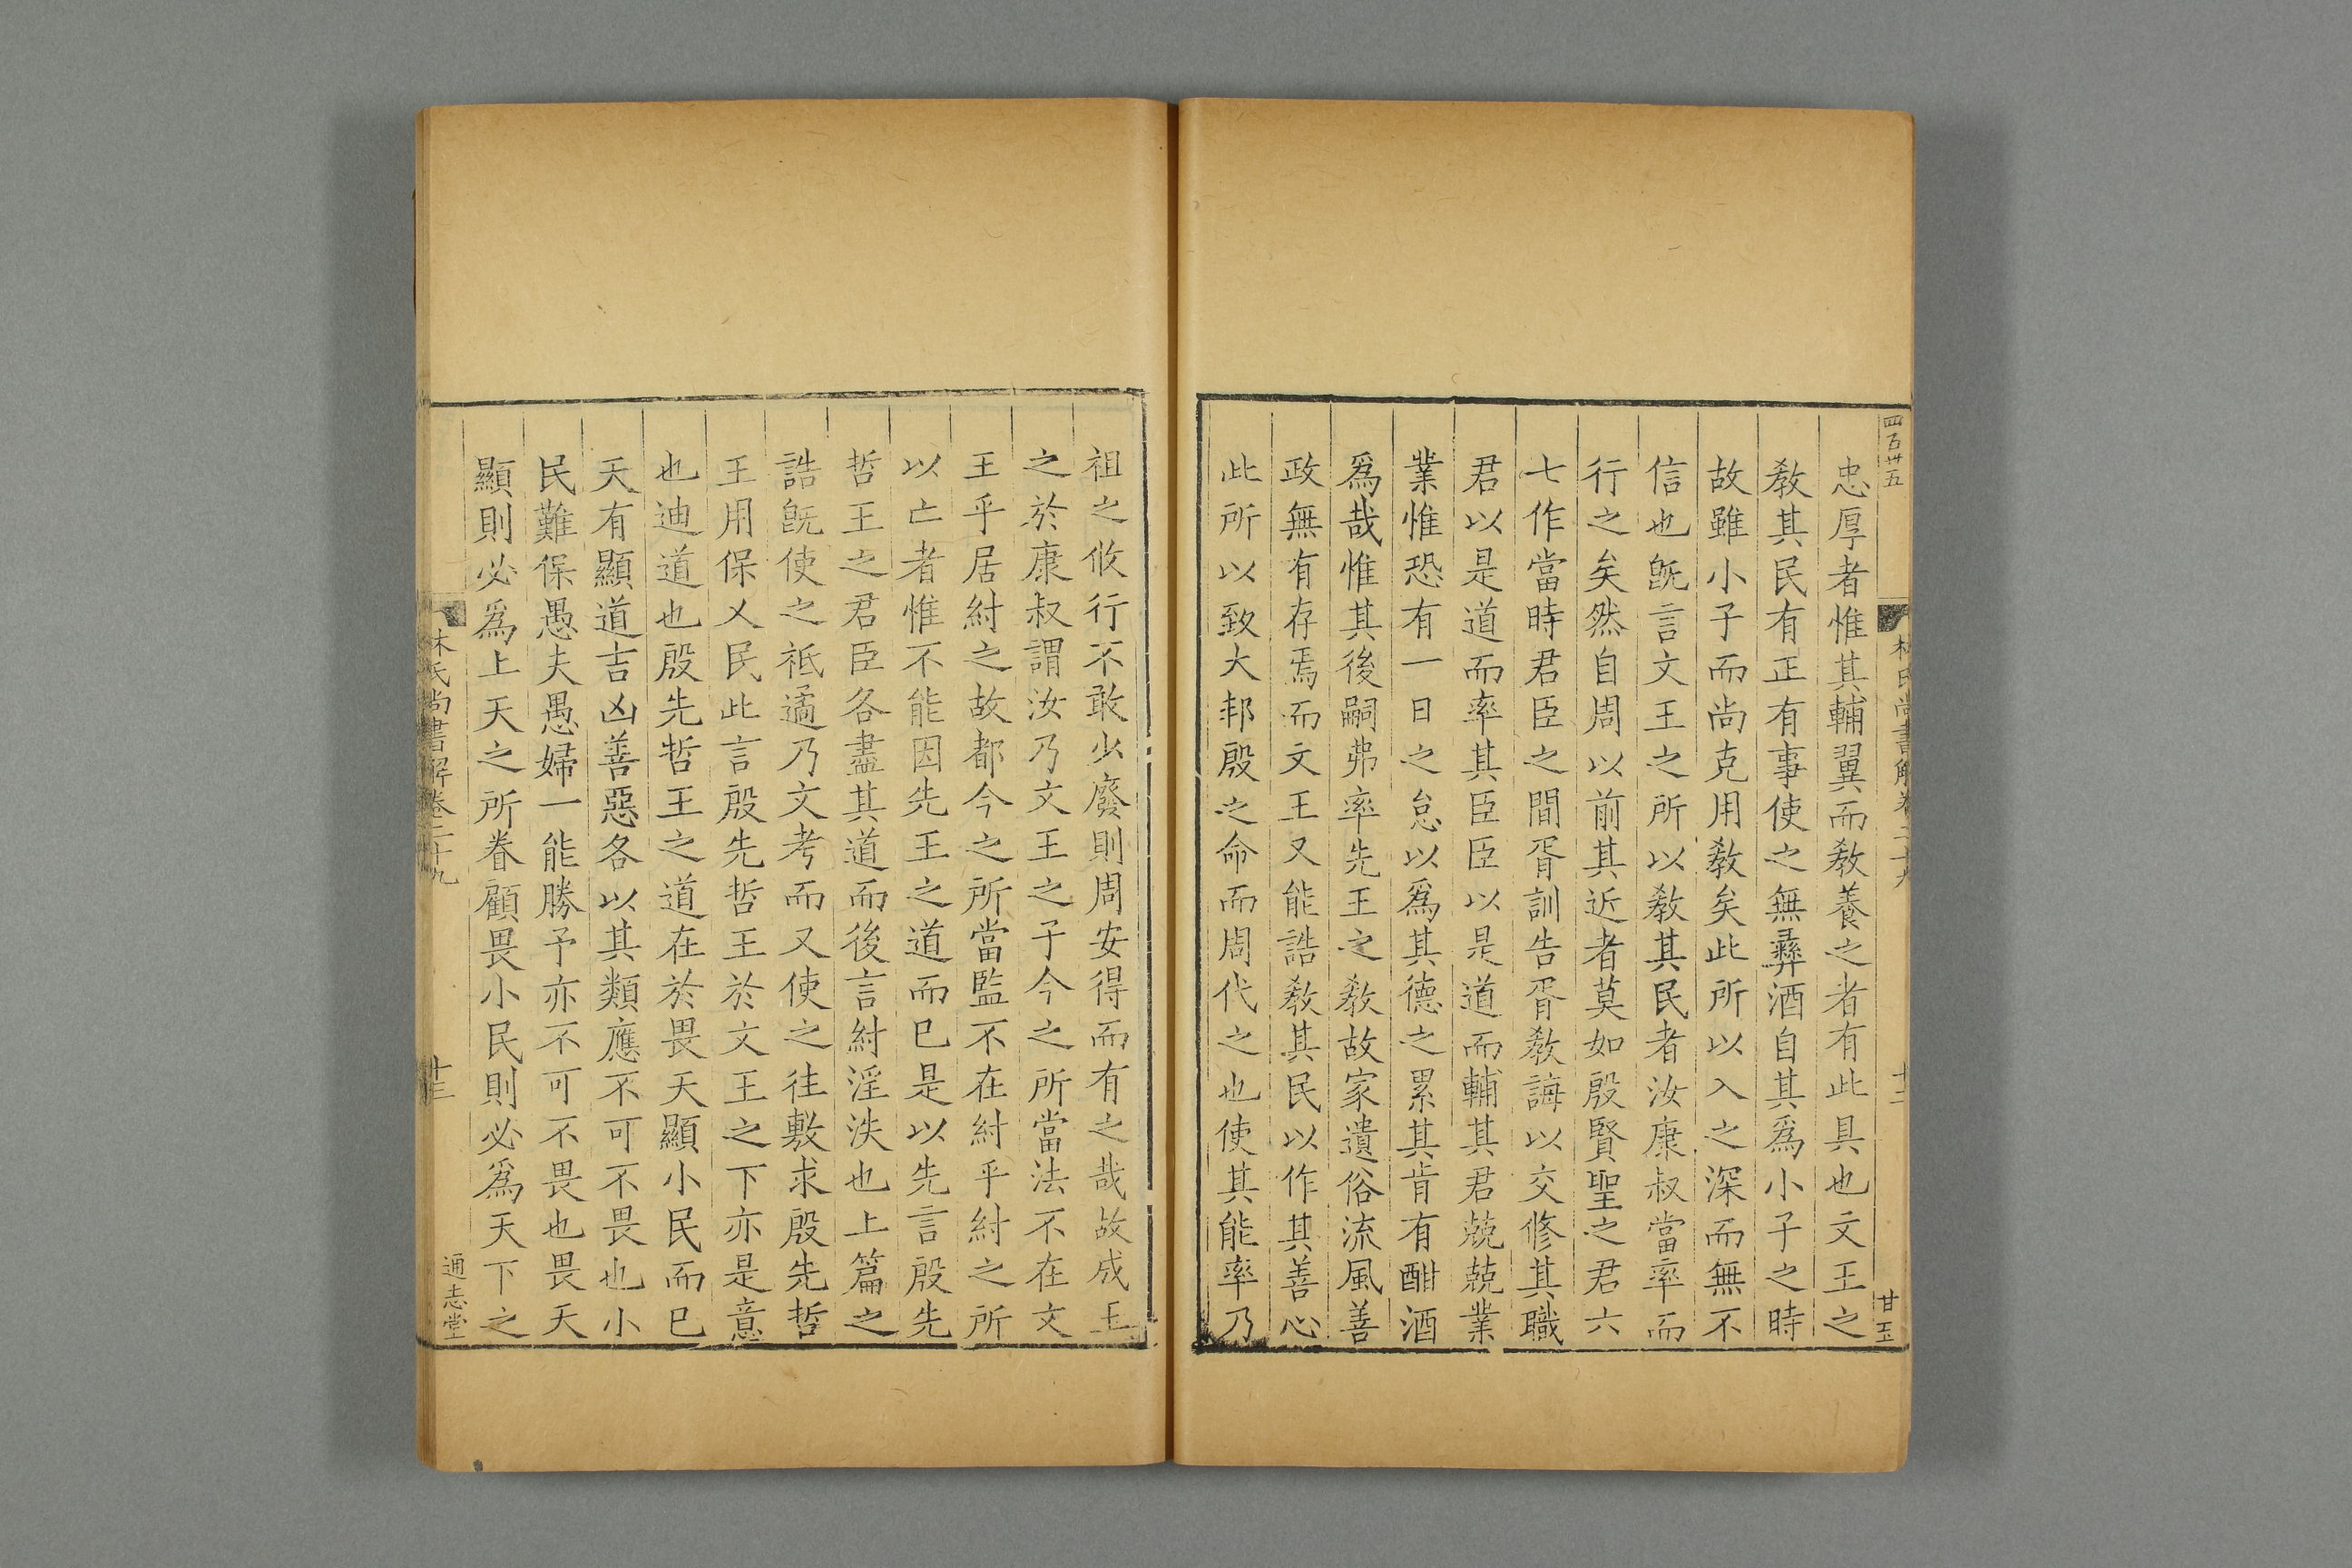 四百卅五
忠厚者惟其輔翼而敎養之者有此具也文王之
敎其民有正有事使之無彝酒自其爲小子之時
故雖小子而尚克用敎矣此所以入之深而無不
信也旣言文王之所以敎其民者汝康叔當率而
行之矣然自周以前其近者莫如殷賢聖之君六
七作當時君臣之間胥訓告胥敎誨以交修其職
君以是道而率其臣臣以是道而輔其君兢兢業
業惟恐有一日之怠以爲其德之累其肯有酣酒
爲哉惟其後嗣弗率先王之敎故家遺俗流風善
政無有存焉而文王又能誥敎其民以作其善心
此所以致大邦殷之命而周代之也使其能率乃
林氏尚書解卷二十九
十二
甘玉
祖之攸行不敢少廢則周安得而有之哉故成王
之於康叔謂汝乃文王之子今之所當法不在文
王乎居紂之故都今之所當監不在紂乎紂之所
以亡者惟不能因先王之道而已是以先言殷先
哲王之君臣各盡其道而後言紂淫泆也上篇之
誥旣使之祗遹乃文考而又使之往敷求殷先哲
王用保乂民此言殷先哲王於文王之下亦是意
也迪道也殷先哲王之道在於畏天顯小民而已
天有顯道吉凶善惡各以其類應不可不畏也小
民難保愚夫愚婦一能勝予亦不可不畏也畏天
顯則必爲上天之所眷顧畏小民則必爲天下之
林氏尚書解卷二十九
十三
通志堂